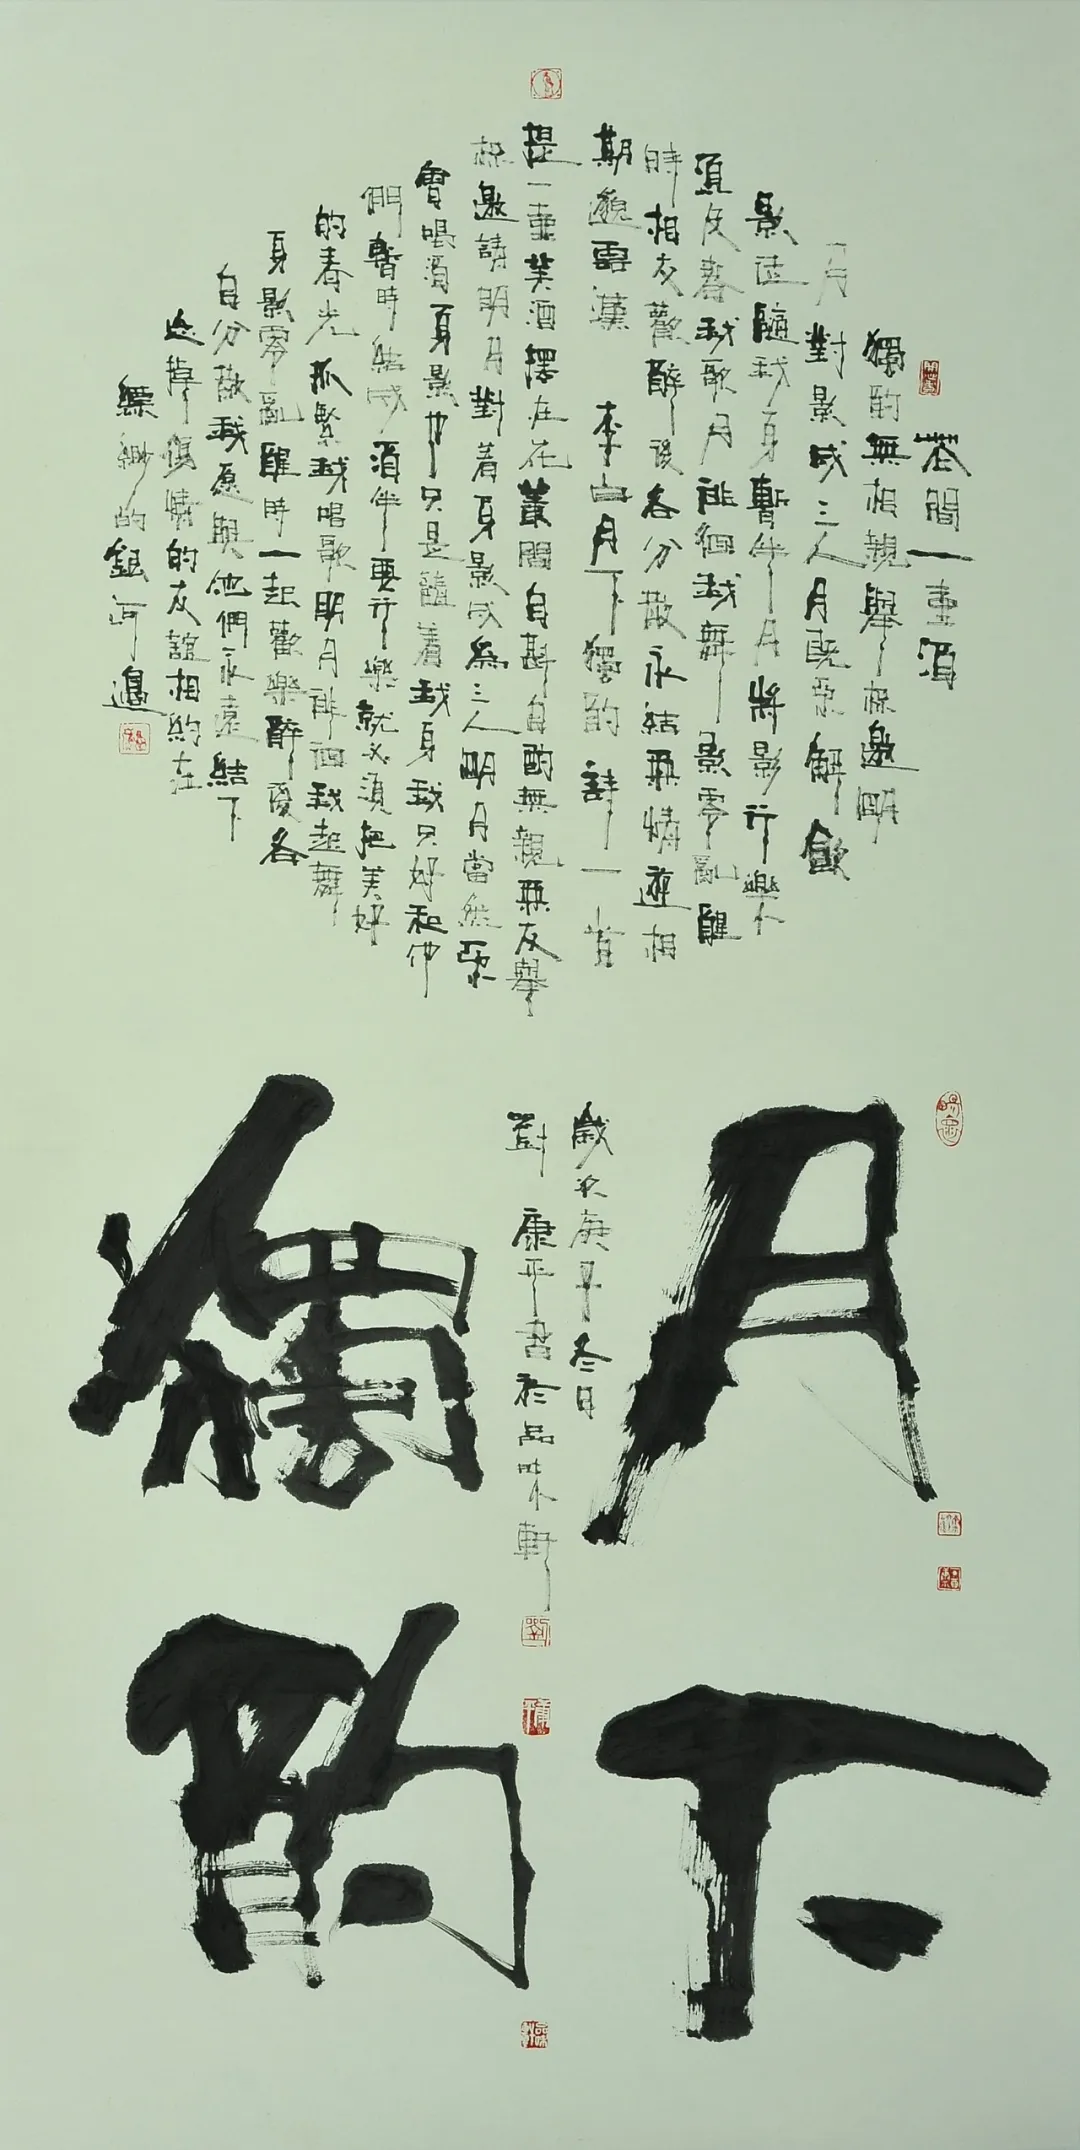 花間一壺酒
獨酌無相親舉杯邀明
月對影成三人月既不解飲
影徒隨我身暫伴月將影行樂
須及春我歌月徘徊我舞影零亂醒
時相交歡醉後各分散永結無情遊相
期邈雲漢 李白月下獨酌詩一首
提一壺美酒擺在花叢間自斟自酌無親無友舉
杯邀請明月對着身影成為三人明月當然不
會喝酒身影也只是隨着我身我只好和他
們暫時結成酒伴要行樂就必須把美好
的春光抓緊我唱歌明月徘徊我起舞
身影零亂醒時一起歡樂醉後各
自分散我願與他們永遠結下
忘掉傷情的友誼相約在
縹緲的銀河邊
月下
獨酌
歲次庚子冬月
劉康平書於品味軒